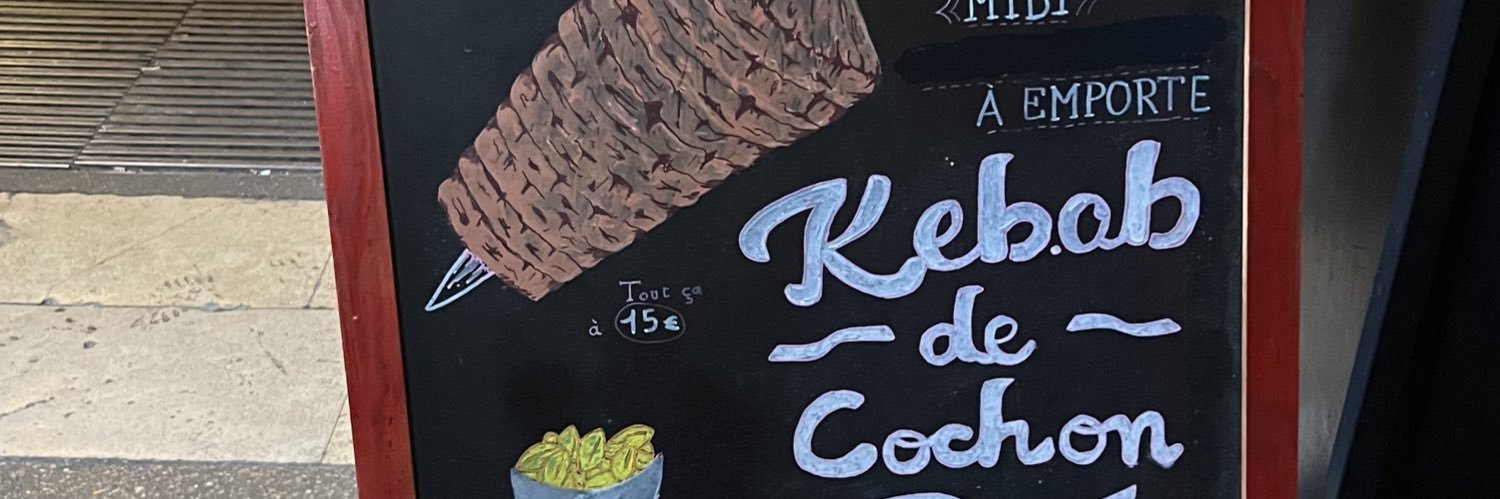 «MIDI»
À EMPORTE
Kebab
de
Cochon
Tout ça
à 15€